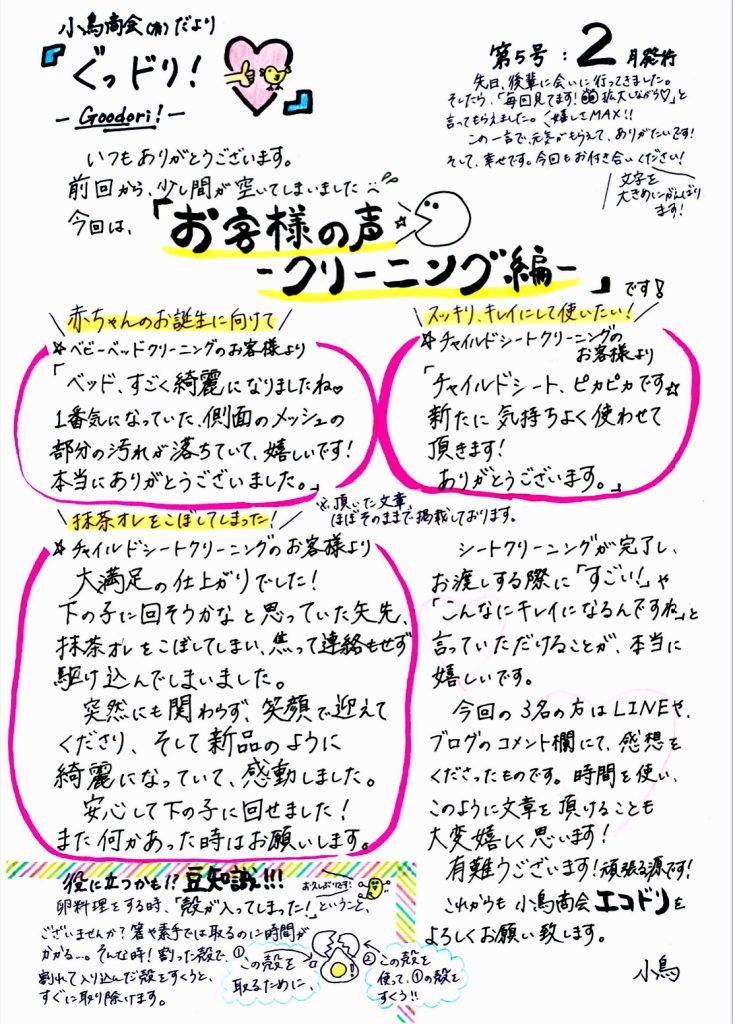 小鳥商会(有)だより
『ぐっドリ!』
- Goodori! -
第5号:2月発行
先日、後輩に会いに行ってきました。
そしたら、「毎回見てます! 拡大しながら♡」と
言ってもらえました。嬉しさMAX!!
この一言で、元気がもらえて、ありがたいです!
そして、幸せです。今回もお付き合いください!
文字を
大きめにがんばり
ます!
いつもありがとうございます。
前回から、少し間が空いてしまいました
今回は、
「お客様の声☆
-クリーニング編-」です!
\赤ちゃんのお誕生に向けて/
☆ベビーベッドクリーニングのお客様より
「ベッド、すごく綺麗になりましたね♡
1番気になっていた、側面のメッシュの
部分の汚れが落ちていて、嬉しいです!
本当にありがとうございました。」
\スッキリ、キレイにして使いたい!/
☆チャイルドシートクリーニングの
お客様より
「チャイルドシート、ピカピカです☆
新たに気持ちよく使わせて
頂きます!
ありがとうございます。」
※頂いた文章、
ほぼそのままで掲載しております。
\抹茶オレをこぼしてしまった!/
☆チャイルドシートクリーニングのお客様より
大満足の仕上がりでした!
下の子に回そうかなと思っていた矢先、
抹茶オレをこぼしてしまい、焦って連絡もせず
駆け込んでしまいました。
突然にも関わらず、笑顔で迎えて
くださり、そして新品のように
綺麗になっていて、感動しました。
安心して下の子に回せました!
また何かあった時はお願いします。
シートクリーニングが完了し、
お渡しする際に「すごい!」や
「こんなにキレイになるんですね」と
言っていただけることが、本当に
嬉しいです。
今回の3名の方はLINEや、
ブログのコメント欄にて、感想を
くださったものです。時間を使い、
このように文章を頂けることも
大変嬉しく思います!
有難うございます!頑張る源です!
これからも小鳥商会エコドリを
よろしくお願い致します。
小鳥
役に立つかも!?豆知識!!!
お久しぶりです!
卵料理をする時、「殻が入ってしまった!」ということ、
ございませんか?箸や素手では取るのに時間が
かかる…。そんな時!割った殻で、
割れて入り込んだ殻をすくうと、
すぐに取り除けます。
①この殻を
取るために、
②この殻を
使って、①の殻を
すくう!!